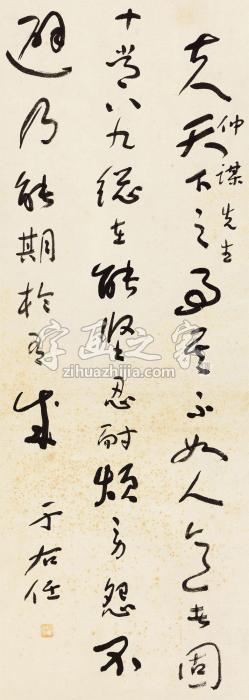 夫天下之事其不如人意者固
仲謀先生
十常八九總在能堅忍耐煩勞怨不
避乃能期於有成
于右任
字画之家
zihuazhijia.com